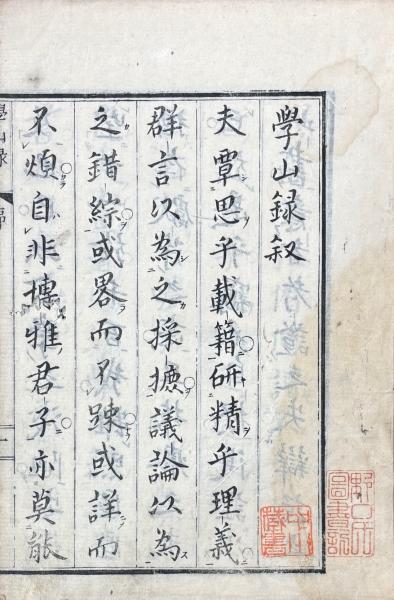 學山録叙
夫覃思乎載籍研精乎理義
群言以為之採摭議論以為
之錯綜或畧而不踈或詳而
不煩自非摶雅君子亦莫能
學山録